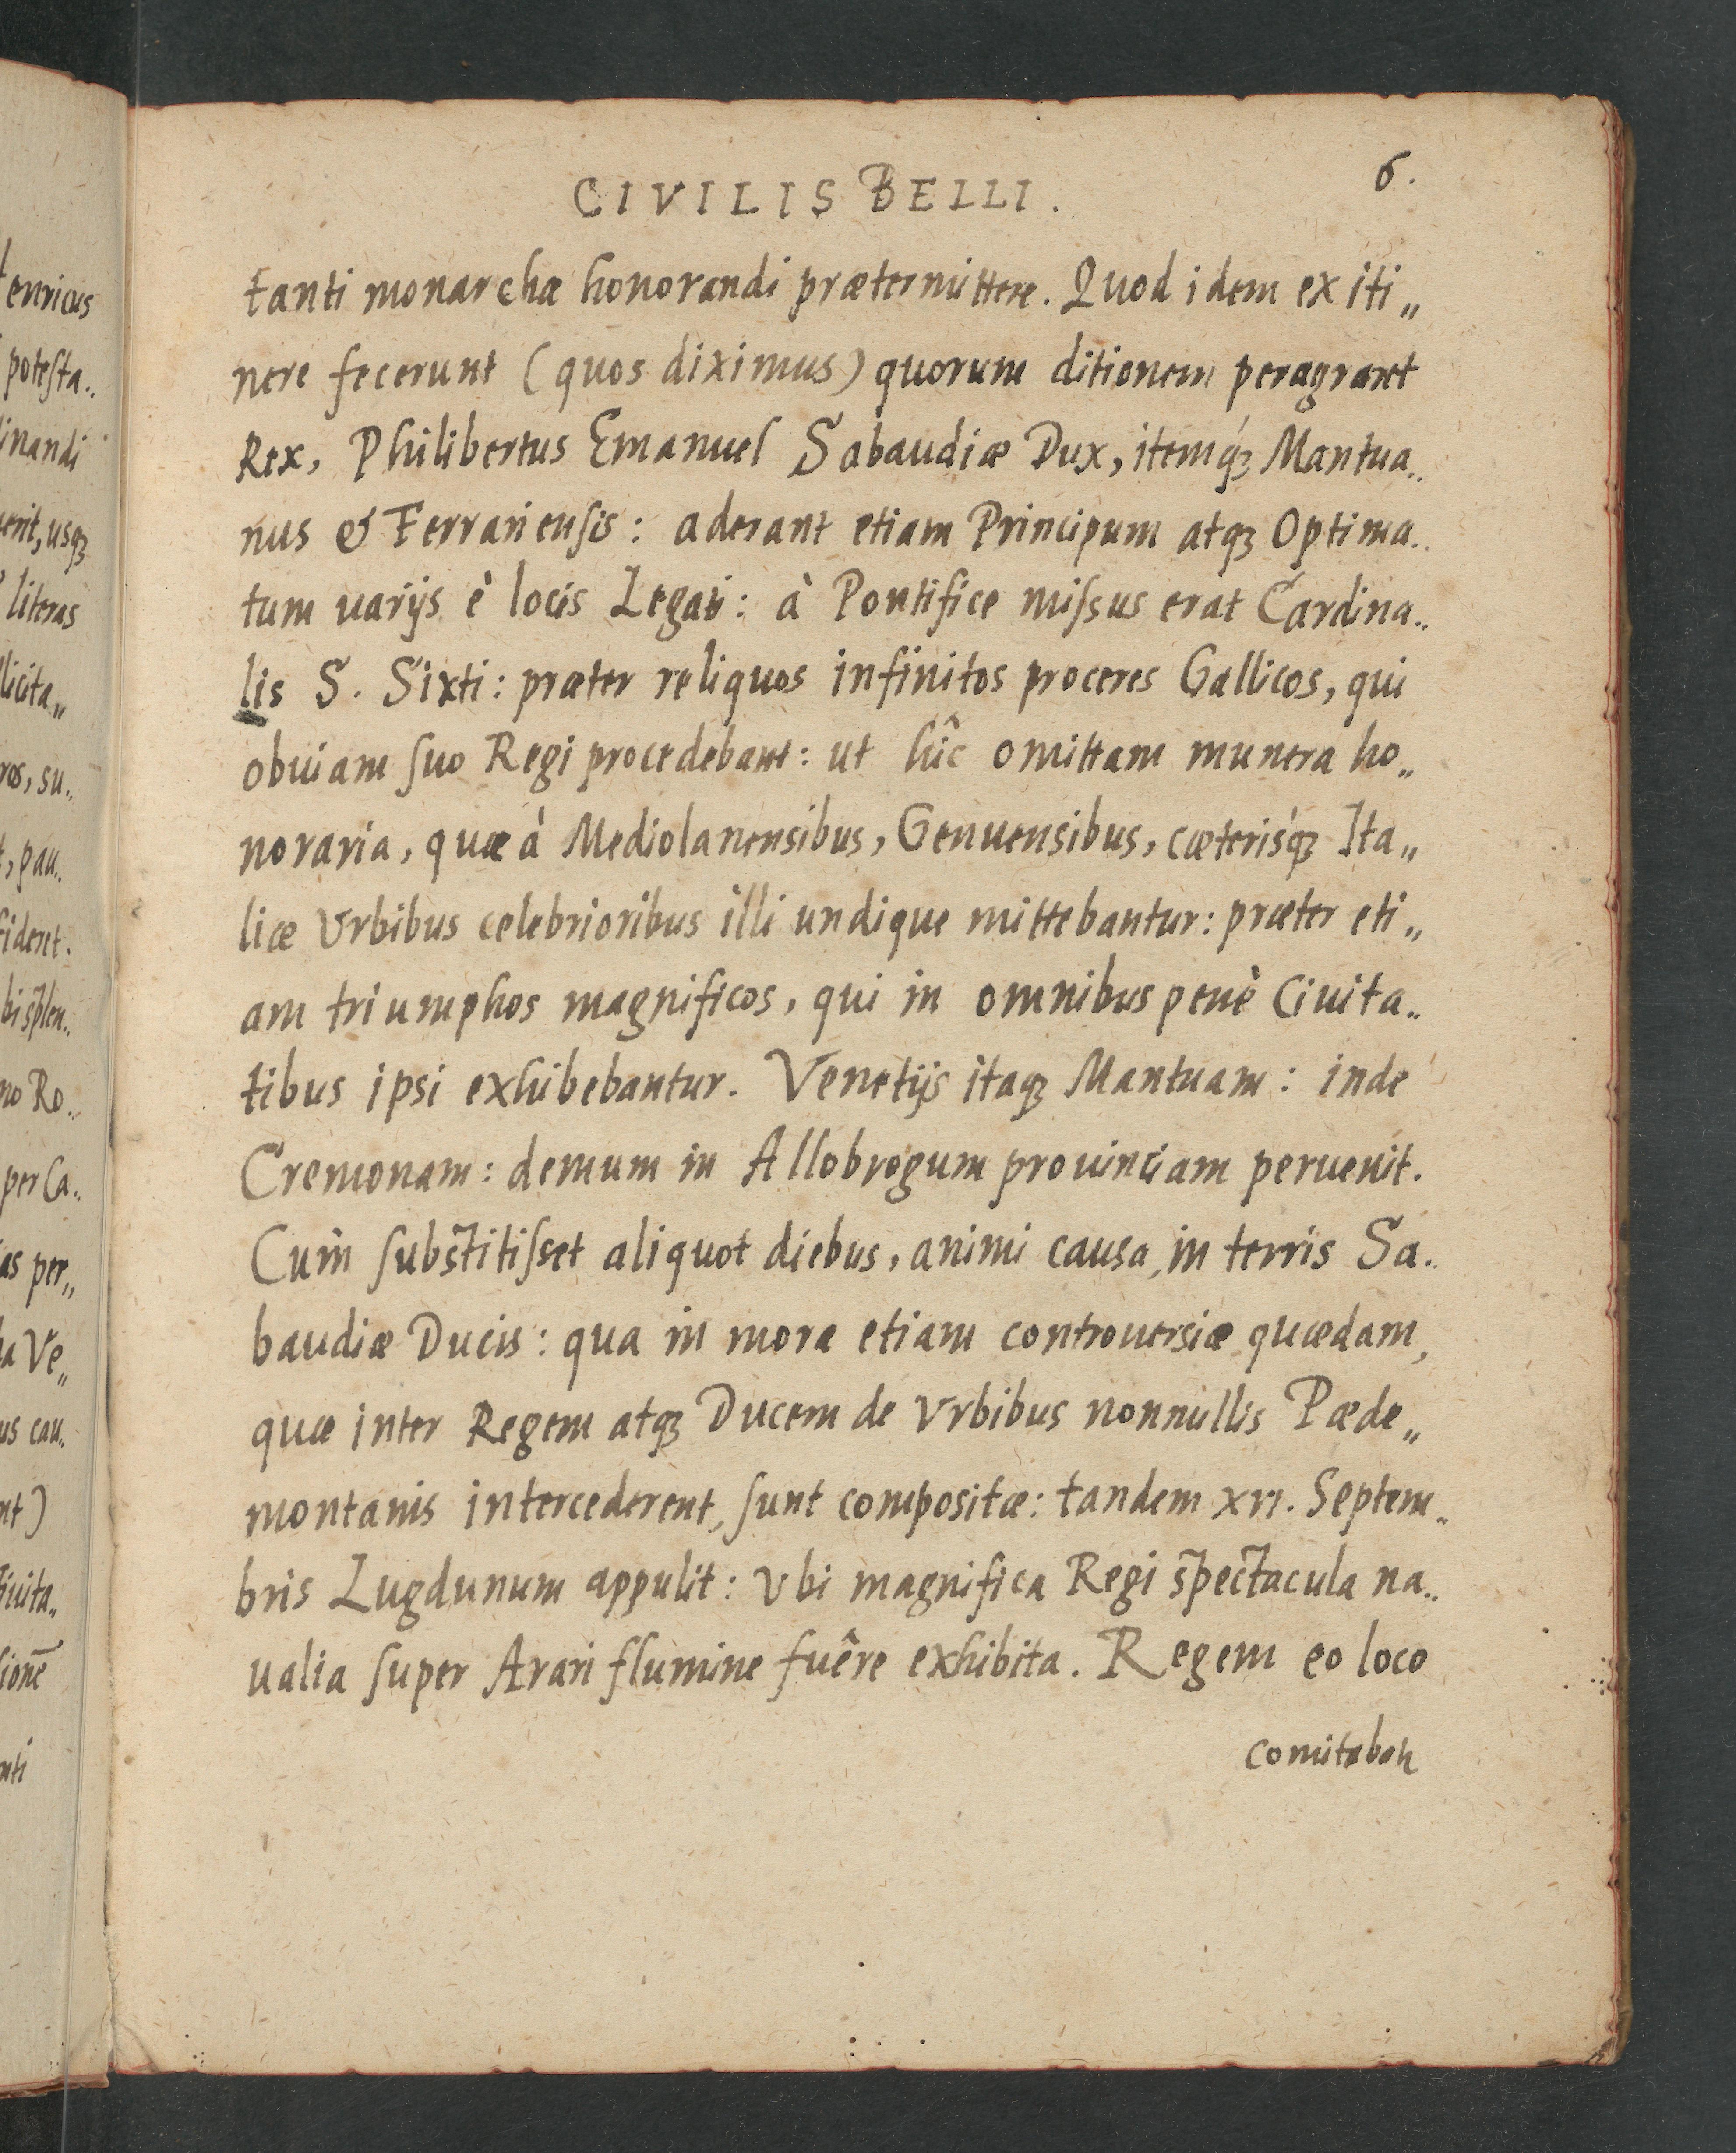 CIVILIS BELLI.
6.
tanti monarchæ honorandi prætermittere. Quod idem ex iti„
nere fecerunt (quos diximus) quorum ditionem peragraret
Rex, Philibertus Emanuel Sabaudiæ Dux, itemq́ꝫ Mantua..
nus & Ferrariensis: aderant etiam Principum atqꝫ Optima..
tum uarijs è locis Legati: à Pontifice miſsus erat Cardina..
lis S. Sixti: præter reliquos infinitos proceres Gallicos, qui
obuiam ſuo Regi procedebant: ut hîc omittam munera ho„
noraria, quæ à Mediolanensibus, Genuensibus, cæterisq́ꝫ Ita„
liæ Vrbibus celebrioribus illi undique mittebantur: præter eti„
am triumphos magnificos, qui in omnibus penè Ciuita..
tibus ipsi exhibebantur. Venetijs itaqꝫ Mantuam: inde
Cremonam: demum in Allobrogum prouinciam peruenit.
Cum̀ ſubstitiſset aliquot diebus, animi causa, in terris Sa..
baudiæ Ducis: qua in mora etiam controuersiæ quædam,
quæ inter Regem atqꝫ Ducem de Vrbibus nonnullis Pæde„
montanis intercederent, ſunt compositæ: tandem xvi. Septem..
bris Lugdunum appulit: Vbi magnifica Regi spectacula na..
ualia ſuper Arari flumine fuêre exhibita. Regem eo loco
comitaban
enricus
poteſta..
inandi
erit, usqꝫ
literas
licita„
ros, su..
t, gau..
fideret.
bi splen..
no Ro..
per Ca..
as per„
la Ve„
us cau..
nt)
iuita..
ſionē
nti